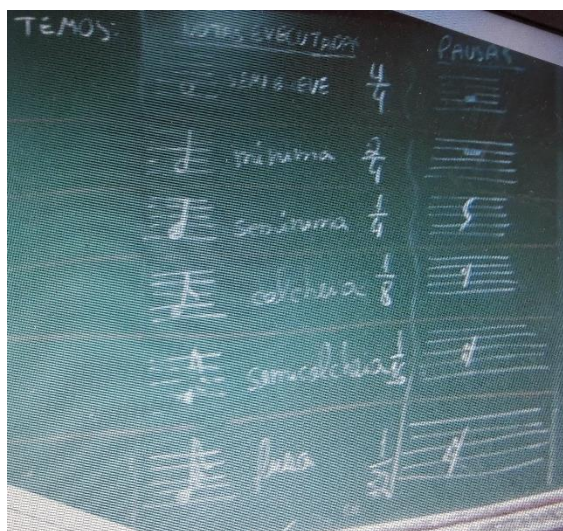 TEMOS: NOTAS EXECUTADAS PAUSAS
SEMIBREVE 4/4
mínima 2/4
semínima 1/4
colcheia 1/8
semicolcheia 1/16
fusa 1/32